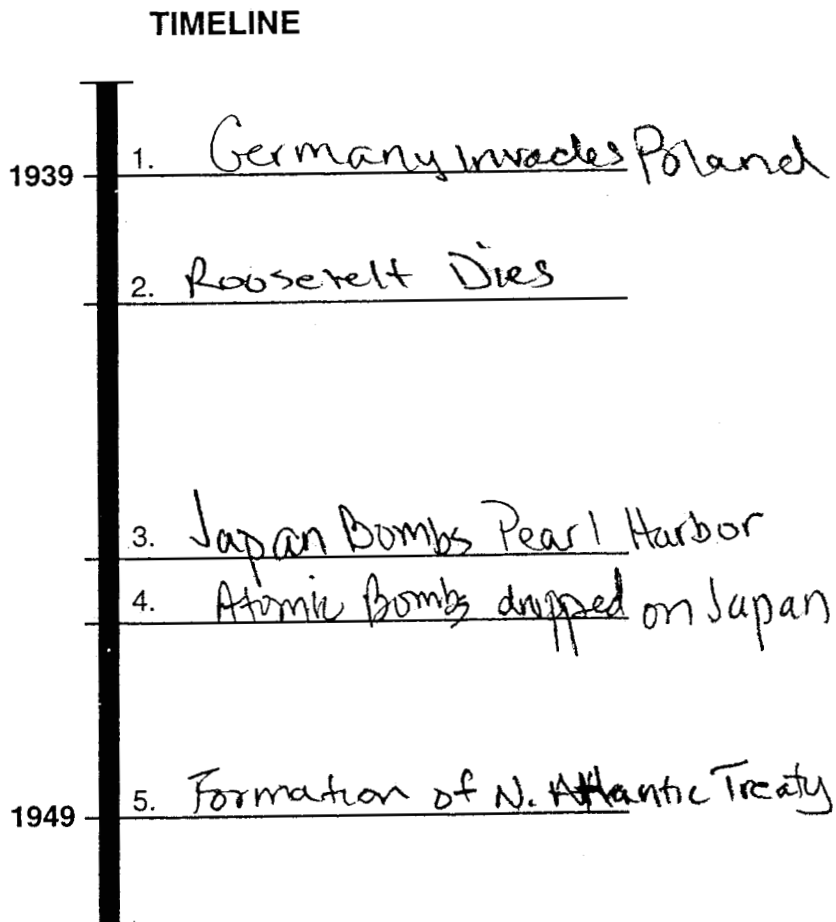 TIMELINE
1939
1. Germany Invades Poland
2. Roosevelt Dies
3. Japan Bombs Pearl Harbor
4. Atomic Bombs dropped on Japan
1949
5. Formation of N. Atlantic Treaty